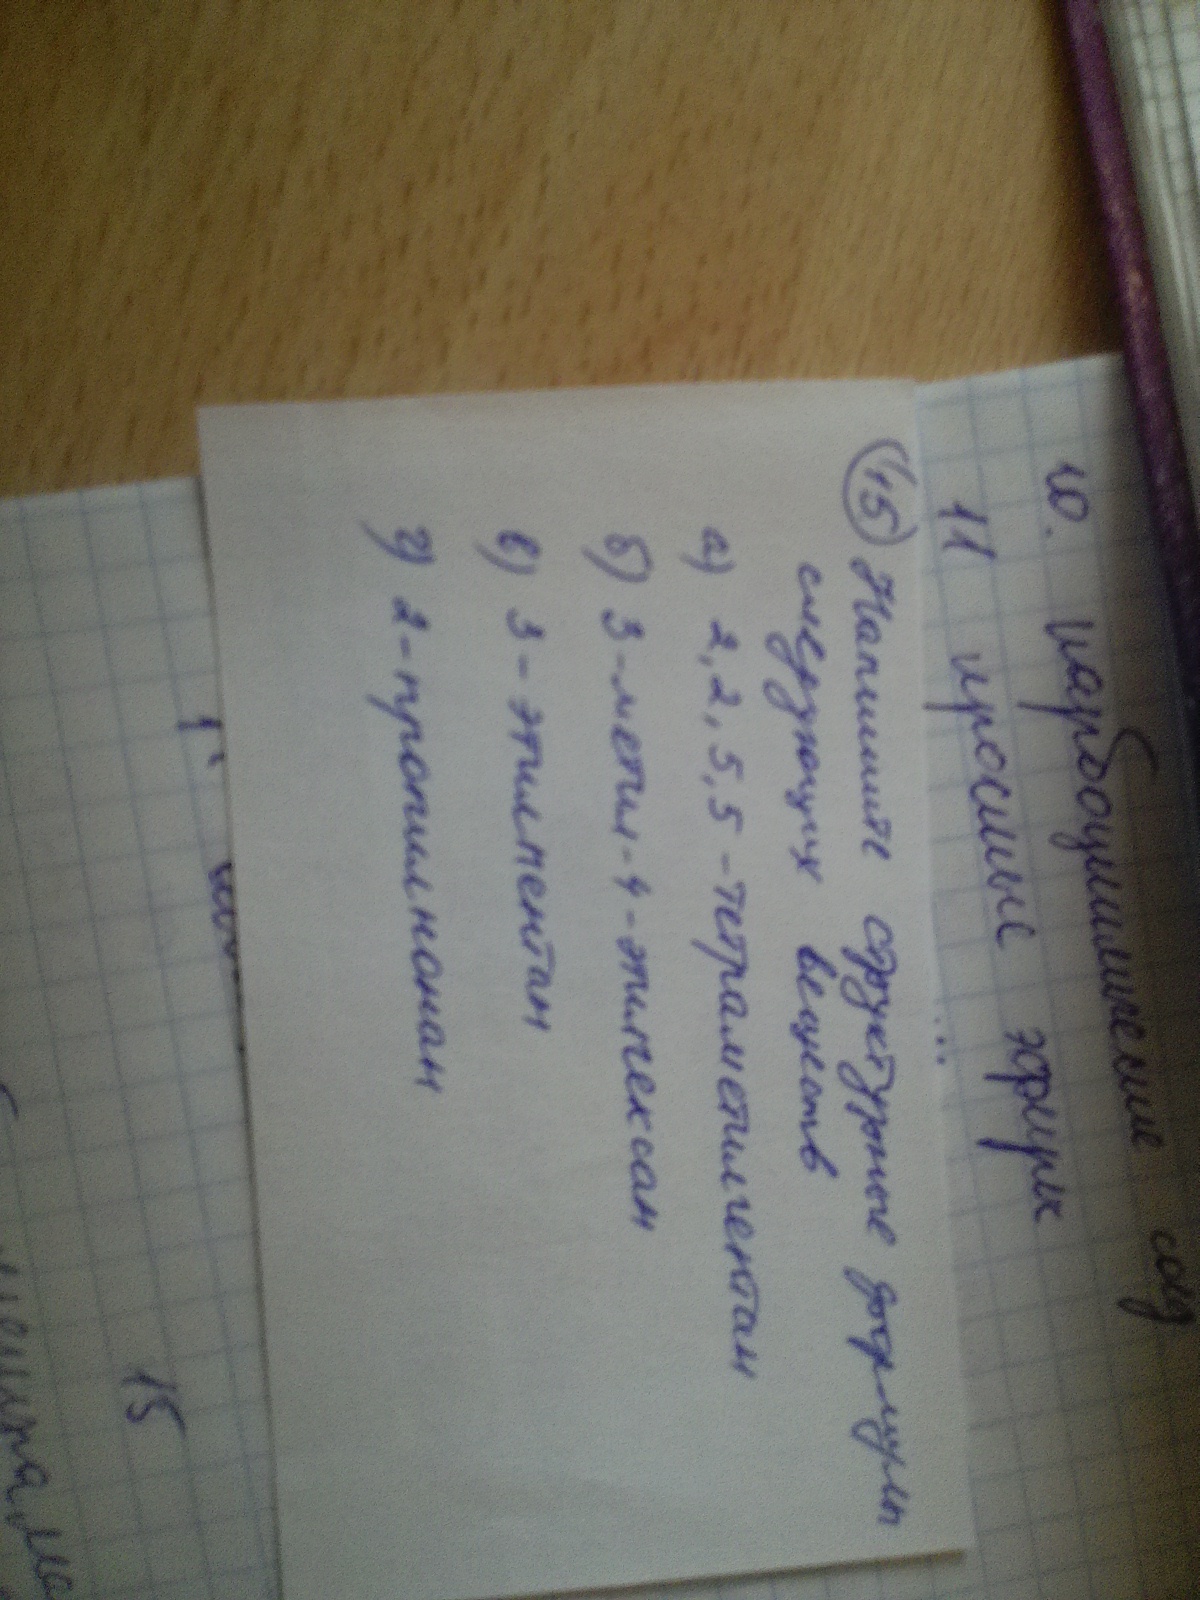 10. карбоциклические соед
11 простые эфиры
15 Напишите структурные формулы
следующих веществ
а) 2,2,5,5-тетраметилгентан
б) 3-метил-4-этилгексан
в) 3-этилпентан
г) 2-пропилнонан
15